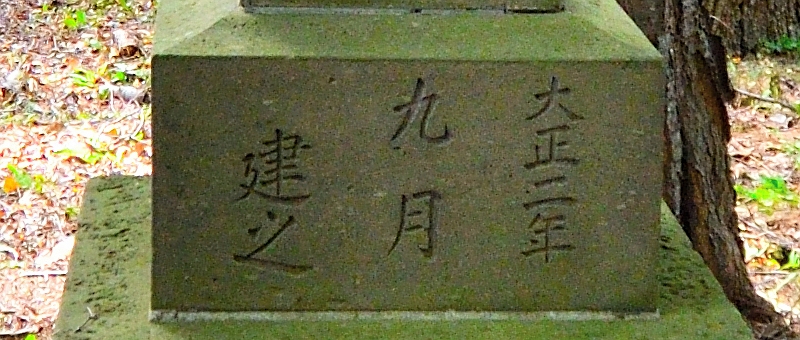 大正二年
九月
建之